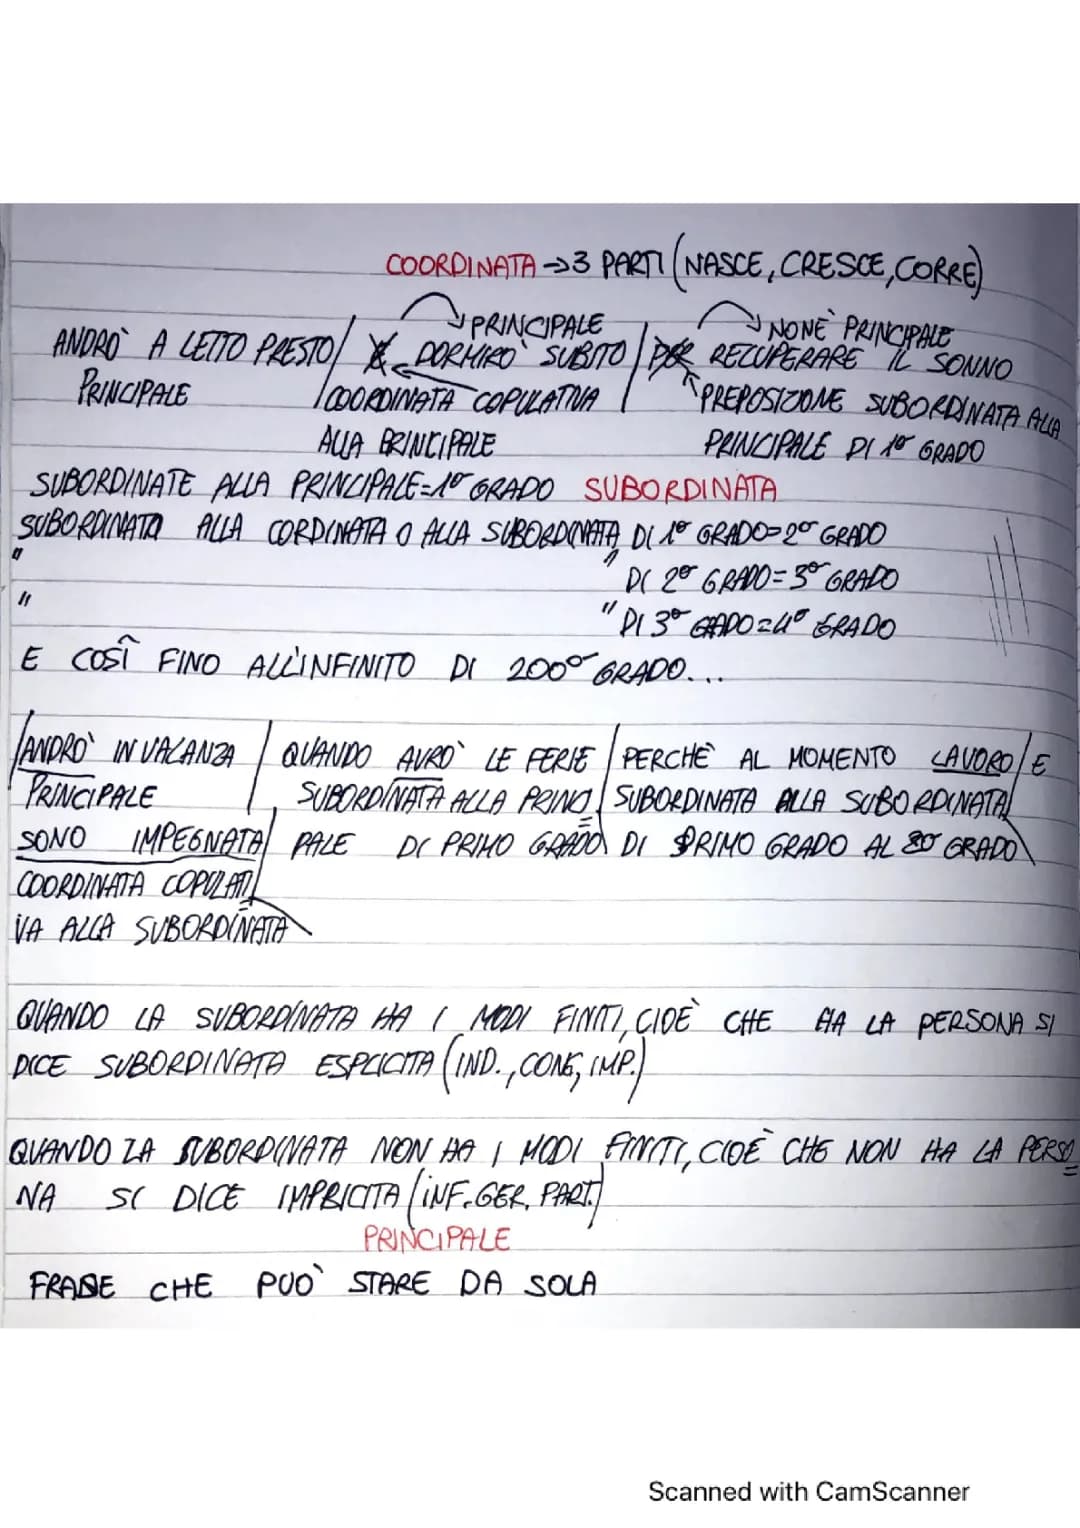 COORDINATA → 3 PARTI (NASCE, CRESCE, CORRE)
PRINCIPALE NONÈ PRINCIPALE
ANDRÒ A LETTO PRESTO / E DORMIRÒ SUBITO / PER RECUPERARE IL SONNO
PRINCIPALE / COORDINATA COPULATIVA PREPOSIZIONE SUBORDINATA ALLA
ALLA PRINCIPALE PRINCIPALE DI 1º GRADO
SUBORDINATE ALLA PRINCIPALE=1º GRADO SUBORDINATA
SUBORDINATA ALLA CORDINATA O ALLA SUBORDINATA DI 1º GRADO=2º GRADO
" " DI 2º GRADO=3º GRADO
" " DI 3º GRADO=4º GRADO
E COSÌ FINO ALL'INFINITO DI 200º GRADO...
/ANDRÒ IN VACANZA / QUANDO AVRÒ LE FERIE / PERCHÈ AL MOMENTO LAVORO / E
PRINCIPALE SUBORDINATA ALLA PRINCI SUBORDINATA ALLA SUBORDINATA
SONO IMPEGNATA PALE DI PRIMO GRADO DI PRIMO GRADO AL 2º GRADO
COORDINATA COPULATI
VA ALLA SUBORDINATA
QUANDO LA SUBORDINATA HA I MODI FINITI, CIOÈ CHE HA LA PERSONA SI
DICE SUBORDINATA ESPLICITA (IND., CONG, IMP.)
QUANDO LA SUBORDINATA NON HA I MODI FINITI, CIOÈ CHE NON HA LA PERSO
NA SI DICE IMPRICITA (INF. GER, PART.)
PRINCIPALE
FRASE CHE PUÒ STARE DA SOLA
Scanned with CamScanner